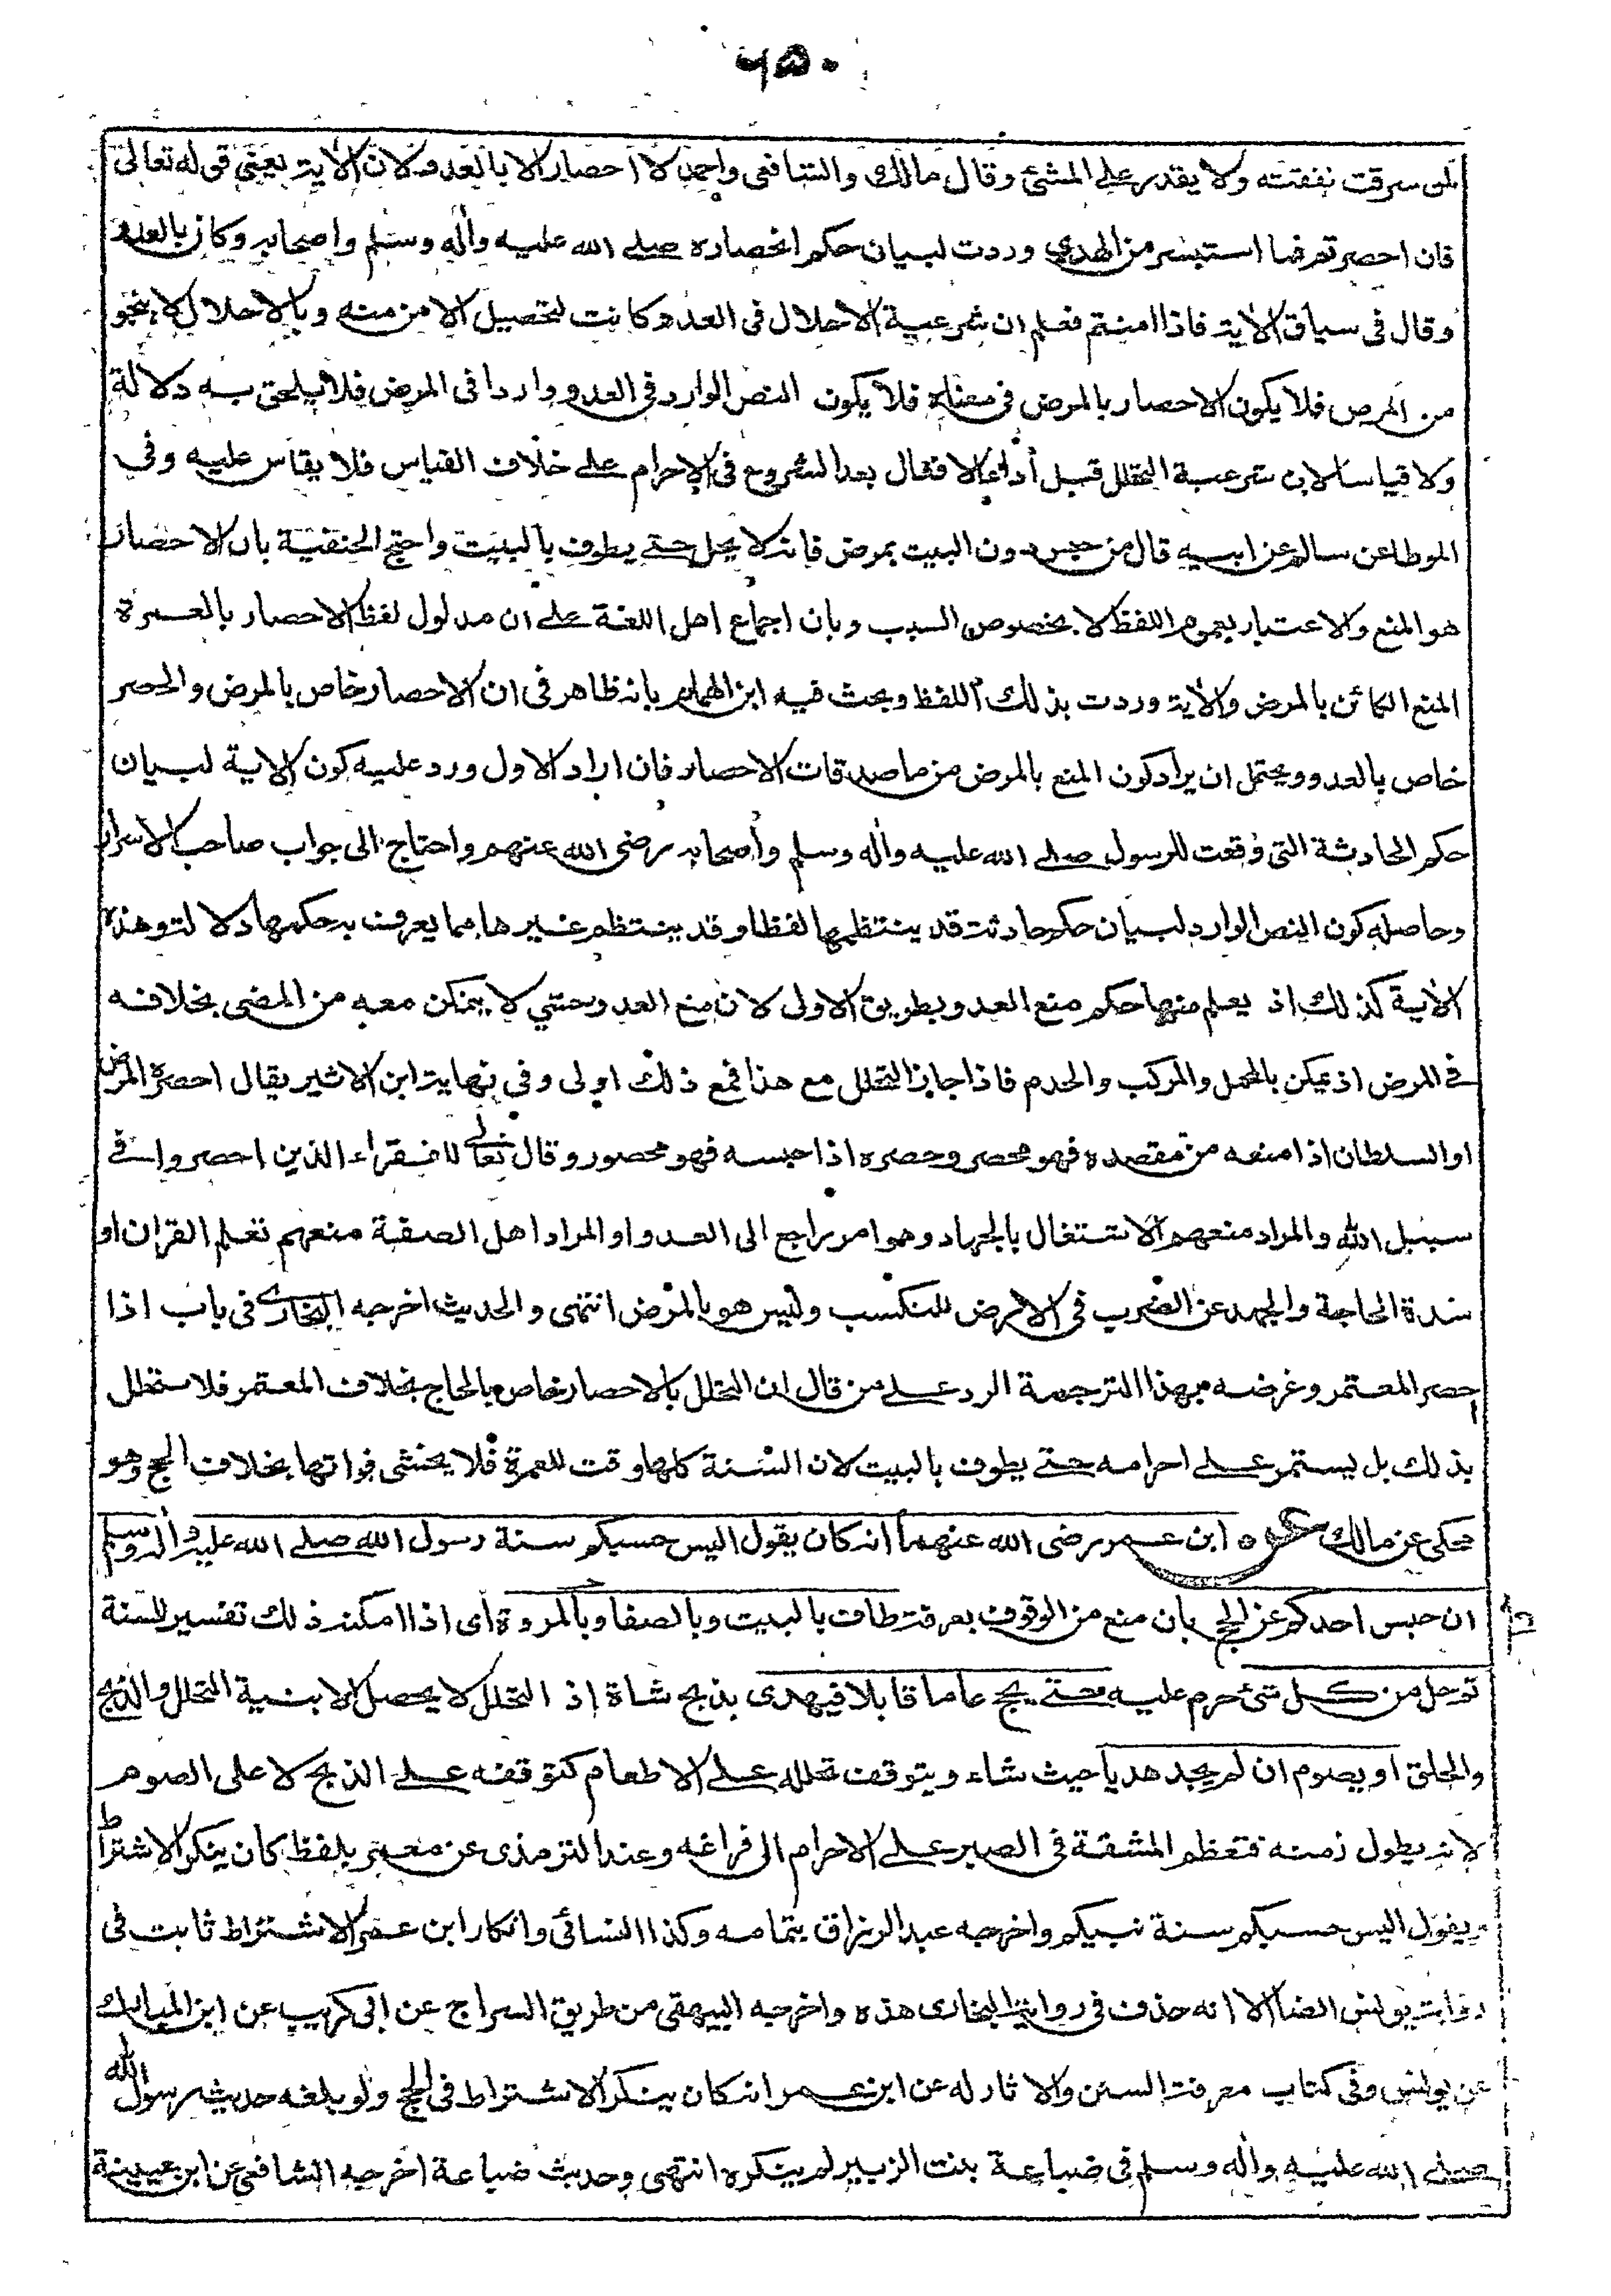 ۶۵۰
لمن سرقت نفقته ولا يقدر على المشئ وقال مالك والشافعى واحمد لا احصار الا بالعدو ولان الاية يعنى قوله تعالى
فان احصرتم فما استيسر من الهدى وردت لبيان حكم انحصاره صلے الله عليه وأله وسلم واصحابه وكان بالعدو
وقال فى سياق الاية فاذا امنتم فعلم ان شرعية الاحلال فى العدو كانت لتحصيل الامن منه وبالاحلال لا ينجو
من المرض فلا يكون الاحصار بالمرض فى معناه فلا يكون النص الوارد فى العدو واردا فى المرض فلا يلحق به دلالة
ولا قياسا لان شرعية التحلل قبل أداء الافعال بعد الشروع فى الاحرام على خلاف القياس فلا يقاس عليه وفى
الموطا عن سالم عن ابيه قال من حبس دون البيت بمرض فانه لا يحل حتے يطوف بالبيت واحتج الحنفية بان الاحصار
هو المنع والاعتبار بعموم اللفظ لا بخصوص السبب وبان اجماع اهل اللغة على ان مدلول لفظ الاحصار بالعمرة
المنع الكائن بالمرض والاية وردت بذلك اللفظ وبحث فيه ابن الهمام بانه ظاهر فى ان الاحصار خاص بالمرض والحصر
خاص بالعدو ويحتمل ان يراد كون المنع بالمرض من ما صدقات الاحصار فان اراد الاول ورد عليه كون الاية لبيان
حكم الحادثة التى وقعت للرسول صلے الله عليه واله وسلم وأصحابه رضى الله عنهم واحتاج الى جواب صاحب الاسرار
وحاصله كون النص الوارد لبيان حكم حادثة قد ينتظمها لفظا وقد ينتظم غيرها مما يعرف به حكمها دلالة وهذه
الأية كذلك اذ يعلم منها حكم منع العدو بطريق الاولى لان منع العدو حسي لا يتمكن معه من المضى بخلافه
فى المرض اذ يمكن بالمحمل والمركب والخدم فاذا جاز التحلل مع هذا فمع ذلك اولى وفى نهاية ابن الاثير يقال احصره المرض
او السلطان اذا منعه من مقصده فهو محصر وحصره اذا حبسه فهو محصور وقال تعالى للفقراء الذين احصروا فى
سبيل الله والمراد منعهم الاشتغال بالجهاد وهو امر راجع الى العدو او المراد اهل الصفة منعهم تعلم القران او
شدة الحاجة والجهد عن الضرب فى الارض للتكسب وليس هو بالمرض انتهى والحديث اخرجه البخارى فى باب اذا
احصر المعتمر وغرضه بهذا الترجمة الرد على من قال ان التحلل بالاحصار خاص بالحاج بخلاف المعتمر فلا يتحلل
بذلك بل يستمر على احرامه حتے يطوف بالبيت لان السنة كلها وقت للعمرة فلا يخشى فواتها بخلاف الحج وهو
محكى عن مالك عن ابن عمر رضى الله عنهما انه كان يقول اليس حسبكم سنة رسول الله صلے الله عليه وأله وسلم
ان حبس احدكم عن الحج بان منع من الوقوف بعرفة طاف بالبيت وبالصفا وبالمروة أى اذا امكنه ذلك تفسير للسنة
ثم حل من كل شئ حرم عليه حتے يحج عاما قابلا فيهدى بذبح شاة إذ التحلل لا يحصل الا بنية التحلل والذبح
والحلق او يصوم ان لم يجد هديا حيث شاء ويتوقف تحلله على الاطعام كتوقفه على الذبح لا على الصوم
لانه يطول زمنه فتعظم المشقة فى الصبر على الاحرام الى فراغه وعند الترمذى عن معمر بلفظ كان ينكر الاشتراط
ويقول اليس حسبكم سنة نبيكم واخرجه عبد الرزاق بتمامه وكذا النسائى وانكار ابن عمر الاشتراط ثابت فى
رواية يونس ايضا الا انه حذف فى رواية البخارى هذه واخرجه البيهقى من طريق السراج عن ابى كريب عن ابن المبارك
عن يونس وفى كتاب معرفة السنن والاثار له عن ابن عمر انه كان ينكر الاشتراط فى الحج ولو بلغه حديث رسول الله
صلے الله عليه واله وسلم فى ضباعة بنت الزبير لم ينكره انتهى وحديث ضباعة اخرجه الشافعى عن ابن عيينة